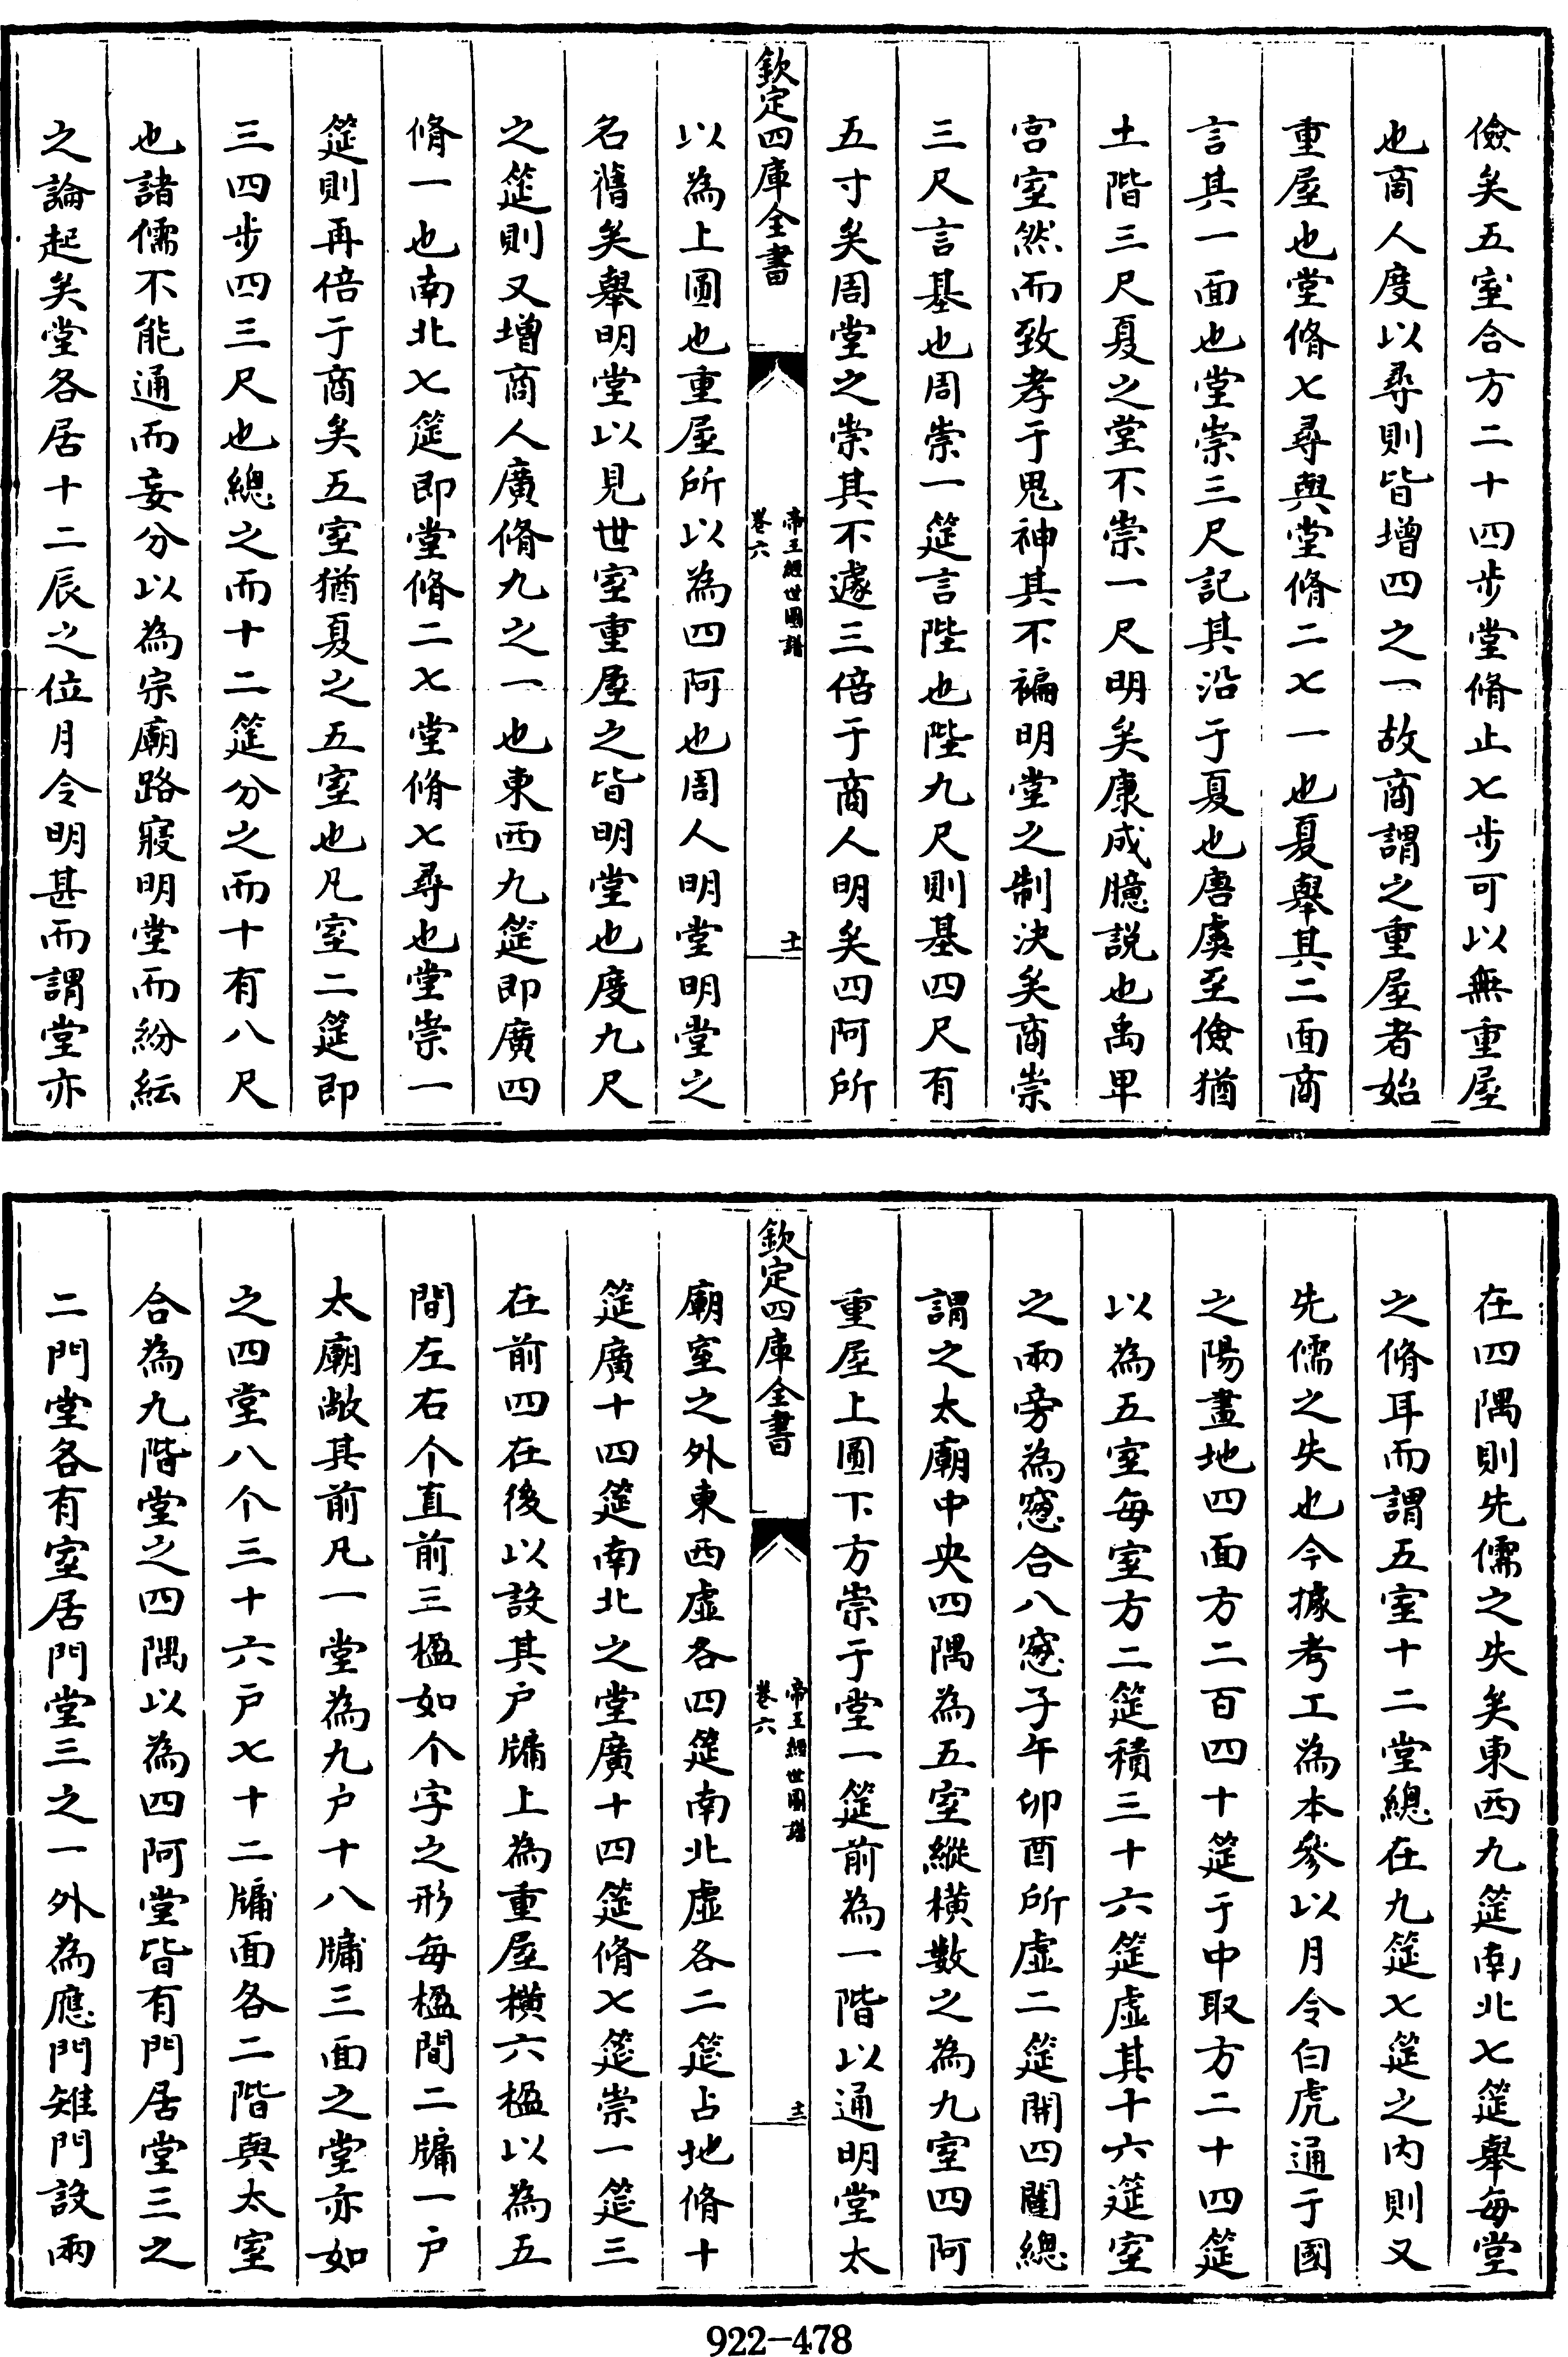 儉矣五室合方二十四步堂脩止七步可以無重屋
也商人度以尋則皆增四之一故商謂之重屋者始
重屋也堂脩七尋與堂脩二七一也夏舉其二面商
言其一面也堂崇三尺記其沿于夏也唐虞至儉猶
土階三尺夏之堂不崇一尺明矣康成臆説也禹卑
宮室然而致孝于鬼神其不褊明堂之制決矣商崇
三尺言基也周崇一筵言陛也陛九尺則基四尺有
五寸矣周堂之崇其不遽三倍于商人明矣四阿所
欽定四庫全書
帝王經世圖譜
卷六
十一
以為上圓也重屋所以為四阿也周人明堂明堂之
名舊矣舉明堂以見世室重屋之皆明堂也度九尺
之筵則又增商人廣脩九之一也東西九筵即廣四
脩一也南北七筵即堂脩二七堂脩七尋也堂崇一
筵則再倍于商矣五室猶夏之五室也凡室二筵即
三四步四三尺也總之而十二筵分之而十有八尺
也諸儒不能通而妄分以為宗廟路寢明堂而紛紜
之論起矣堂各居十二辰之位月令明甚而謂堂亦
在四隅則先儒之失矣東西九筵南北七筵舉每堂
之脩耳而謂五室十二堂總在九筵七筵之内則又
先儒之失也今據考工為本參以月令白虎通于國
之陽畫地四面方二百四十筵于中取方二十四筵
以為五室每室方二筵積三十六筵虛其十六筵室
之兩旁為窻合八窻子午卯酉所虛二筵開四闥總
謂之太廟中央四隅為五室縱橫數之為九室四阿
重屋上圓下方崇于堂一筵前為一階以通明堂太
欽定四庫全書
帝王經世圖譜
卷六
十二
廟室之外東西虛各四筵南北虛各二筵占地脩十
筵廣十四筵南北之堂廣十四筵脩七筵崇一筵三
在前四在後以設其户牖上為重屋橫六楹以為五
間左右个直前三楹如个字之形每楹間二牖一户
太廟敞其前凡一堂為九户十八牖三面之堂亦如
之四堂八个三十六户七十二牖面各二階與太室
合為九階堂之四隅以為四阿堂皆有門居堂三之
二門堂各有室居門堂三之一外為應門雉門設兩
922-478